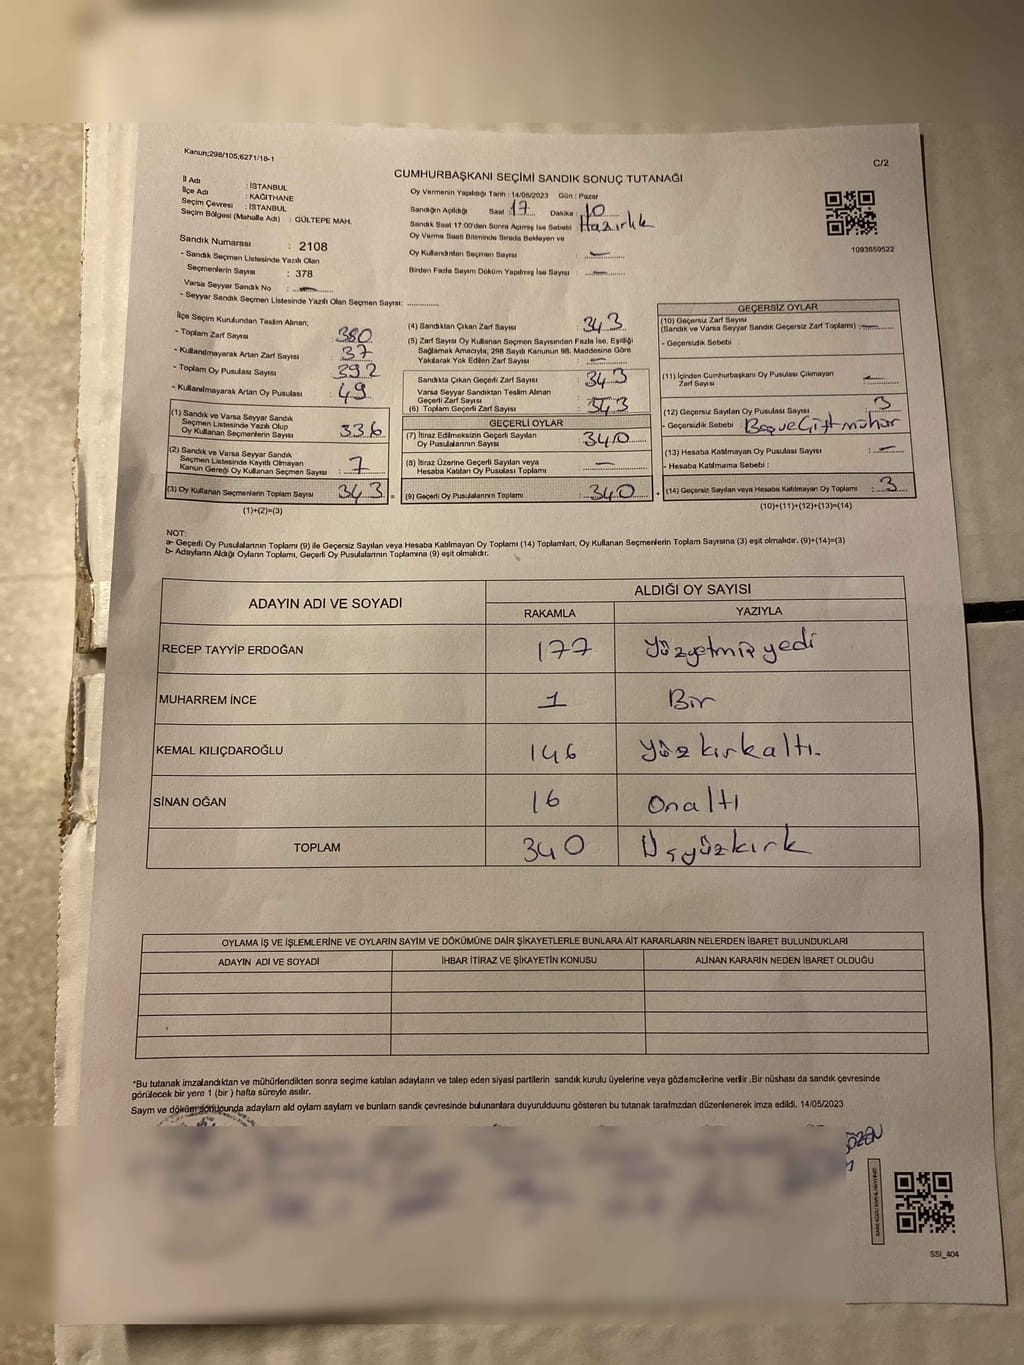 Kanun;298/105;6271/16-1
C/2
CUMHURBAŞKANI SEÇİMİ SANDIK SONUÇ TUTANAĞI
İl Adı : İSTANBUL
İlçe Adı : KAĞITHANE
Seçim Çevresi : İSTANBUL
Seçim Bölgesi (Mahalle Adı) : GÜLTEPE MAH.
Sandık Numarası : 2108
- Sandık Seçmen Listesinde Yazılı Olan
Seçmenlerin Sayısı : 378
Varsa Seyyar Sandık No :
- Seyyar Sandık Seçmen Listesinde Yazılı Olan Seçmen Sayısı:
Oy Vermenin Yapıldığı Tarih : 14/05/2023 Gün : Pazar
Sandığın Açıldığı Saat : 17 Dakika : 10
Sandık Saat 17:00'den Sonra Açılmış İse Sebebi : Hazırlık
Oy Verme Saati Bitiminde Sırada Bekleyen ve
Oy Kullandırılan Seçmen Sayısı : —
Birden Fazla Sayım Döküm Yapılmış İse Sayısı : —
1093659522
İlçe Seçim Kurulundan Teslim Alınan;
- Toplam Zarf Sayısı : 380
- Kullanılmayarak Artan Zarf Sayısı : 37
- Toplam Oy Pusulası Sayısı : 392
- Kullanılmayarak Artan Oy Pusulası : 49
(1) Sandık ve Varsa Seyyar Sandık
Seçmen Listesinde Yazılı Olup
Oy Kullanan Seçmenlerin Sayısı : 336
(2) Sandık ve Varsa Seyyar Sandık
Seçmen Listesinde Kayıtlı Olmayan
Kanun Gereği Oy Kullanan Seçmen Sayısı : 7
(3) Oy Kullanan Seçmenlerin Toplam Sayısı : 343 =
(1)+(2)=(3)
(4) Sandıktan Çıkan Zarf Sayısı : 343
(5) Zarf Sayısı Oy Kullanan Seçmen Sayısından Fazla İse, Eşitliği
Sağlamak Amacıyla; 298 Sayılı Kanunun 98. Maddesine Göre
Yakılarak Yok Edilen Zarf Sayısı : —
Sandıkta Çıkan Geçerli Zarf Sayısı : 343
Varsa Seyyar Sandıktan Teslim Alınan
Geçerli Zarf Sayısı : —
(6) Toplam Geçerli Zarf Sayısı : 343
GEÇERLİ OYLAR
(7) İtiraz Edilmeksizin Geçerli Sayılan
Oy Pusulalarının Sayısı : 340
(8) İtiraz Üzerine Geçerli Sayılan veya
Hesaba Katılan Oy Pusulası Toplamı : —
(9) Geçerli Oy Pusulalarının Toplamı : 340 +
GEÇERSİZ OYLAR
(10) Geçersiz Zarf Sayısı
(Sandık ve Varsa Seyyar Sandık Geçersiz Zarf Toplamı) : —
- Geçersizlik Sebebi :
(11) İçinden Cumhurbaşkanı Oy Pusulası Çıkmayan
Zarf Sayısı : —
(12) Geçersiz Sayılan Oy Pusulası Sayısı : 3
- Geçersizlik Sebebi : Boş ve Çift mühür
(13) Hesaba Katılmayan Oy Pusulası Sayısı : —
- Hesaba Katılmama Sebebi :
(14) Geçersiz Sayılan veya Hesaba Katılmayan Oy Toplamı : 3
(10)+(11)+(12)+(13)=(14)
NOT:
a- Geçerli Oy Pusulalarının Toplamı (9) ile Geçersiz Sayılan veya Hesaba Katılmayan Oy Toplamı (14) Toplamları, Oy Kullanan Seçmenlerin Toplam Sayısına (3) eşit olmalıdır. (9)+(14)=(3)
b- Adayların Aldığı Oyların Toplamı, Geçerli Oy Pusulalarının Toplamına (9) eşit olmalıdır.
ADAYIN ADI VE SOYADI ALDIĞI OY SAYISI
RAKAMLA YAZIYLA
RECEP TAYYİP ERDOĞAN 177 Yüzyetmişyedi
MUHARREM İNCE 1 Bir
KEMAL KILIÇDAROĞLU 146 Yüzkırkaltı.
SİNAN OĞAN 16 Onaltı
TOPLAM 340 Üçyüzkırk
OYLAMA İŞ VE İŞLEMLERİNE VE OYLARIN SAYIM VE DÖKÜMÜNE DAİR ŞİKAYETLERLE BUNLARA AİT KARARLARIN NELERDEN İBARET BULUNDUKLARI
ADAYIN ADI VE SOYADI İHBAR İTİRAZ VE ŞİKAYETİN KONUSU ALINAN KARARIN NEDEN İBARET OLDUĞU
*Bu tutanak imzalandıktan ve mühürlendikten sonra seçime katılan adayların ve talep eden siyasi partilerin sandık kurulu üyelerine veya gözlemcilerine verilir .Bir nüshası da sandık çevresinde
görülecek bir yere 1 (bir ) hafta süreyle asılır.
Sayım ve döküm sonucunda adayların aldı oyların sayıların ve bunların sandk çevresinde bulunanlara duyurulduunu gösteren bu tutanak tarafmzdan düzenlenerek imza edildi. 14/05/2023
SSI_404